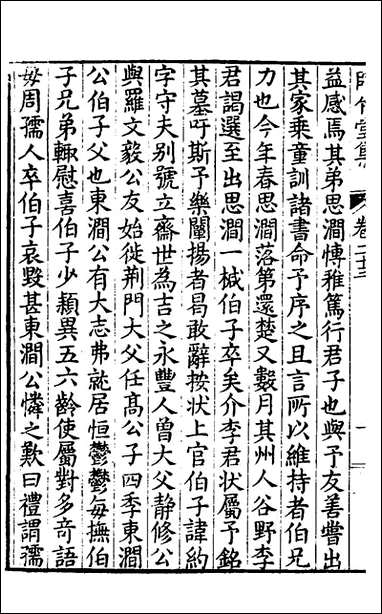 益感焉其弟思澗愽雅篤行君子也與予友善嘗出
其家乘童訓諸書命予序之且言所以維持者伯兄
力也今年春思澗落第還楚又數月其州人谷野李
君謁選至出思澗一椷伯子卒矣介李君狀屬予銘
其墓吁斯予樂闡揚者曷敢辭按状上官伯子諱約
字守夫别號立齋世為吉之永豐人曽大父静修公
與羅文毅公友始徙荆門大父任髙公子四季東澗
公伯子父也東澗公有大志弗就居恒鬱鬱每撫伯
子兄弟輙慰喜伯子少頴異五六齡使屬對多竒語
毋周孺人卒伯子哀毁甚東澗公憐之歎曰禮謂孺
卷二十三
一